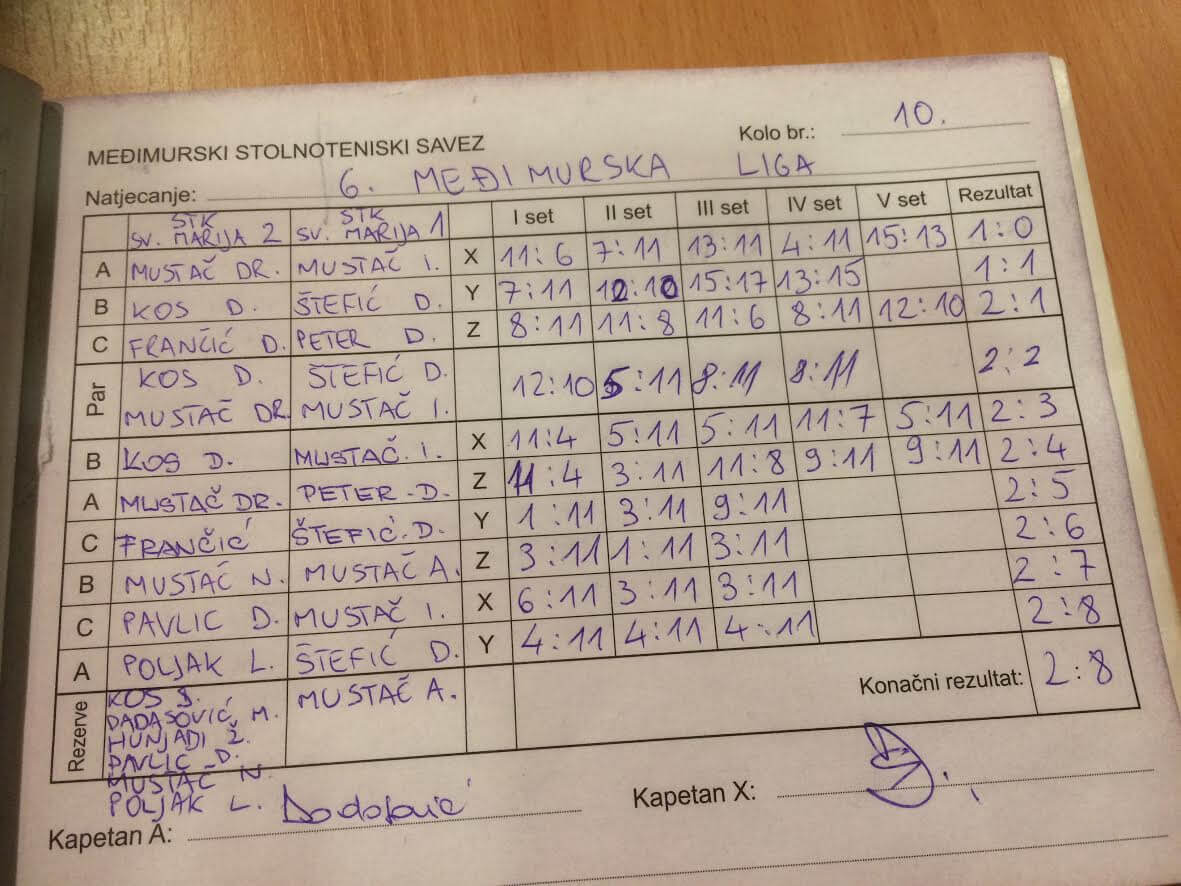 MEĐIMURSKI STOLNOTENISKI SAVEZ Kolo br.: 10.
Natjecanje: 6. MEĐIMURSKA LIGA
STK SV. MARIJA 2 STK SV. MARIJA 1 I set II set III set IV set V set Rezultat
A MUSTAČ DR. MUSTAČ I. X 11:6 7:11 13:11 4:11 15:13 1:0
B KOS D. ŠTEFIĆ D. Y 7:11 12:10 15:17 13:15 1:1
C FRANČIĆ D. PETER D. Z 8:11 11:8 11:6 8:11 12:10 2:1
Par KOS D. ŠTEFIĆ D. 12:10 5:11 8:11 8:11 2:2
MUSTAČ DR. MUSTAČ I.
B KOS D. MUSTAČ. I. X 11:4 5:11 5:11 11:7 5:11 2:3
A MUSTAČ DR. PETER-D. Z 11:4 3:11 11:8 9:11 9:11 2:4
C FRANČIĆ ŠTEFIĆ.D. Y 1:11 3:11 9:11 2:5
B MUSTAČ N. MUSTAČ A. Z 3:11 1:11 3:11 2:6
C PAVLIC D. MUSTAČ I. X 6:11 3:11 3:11 2:7
A POLJAK L. ŠTEFIĆ D. Y 4:11 4:11 4:11 2:8
Rezerve KOS D. MUSTAČ A. Konačni rezultat: 2:8
DADASOVIĆ M.
HUNJADI Ž.
PAVLIC D.
MUSTAČ N.
POLJAK L.
Kapetan A: Dadasović Kapetan X: